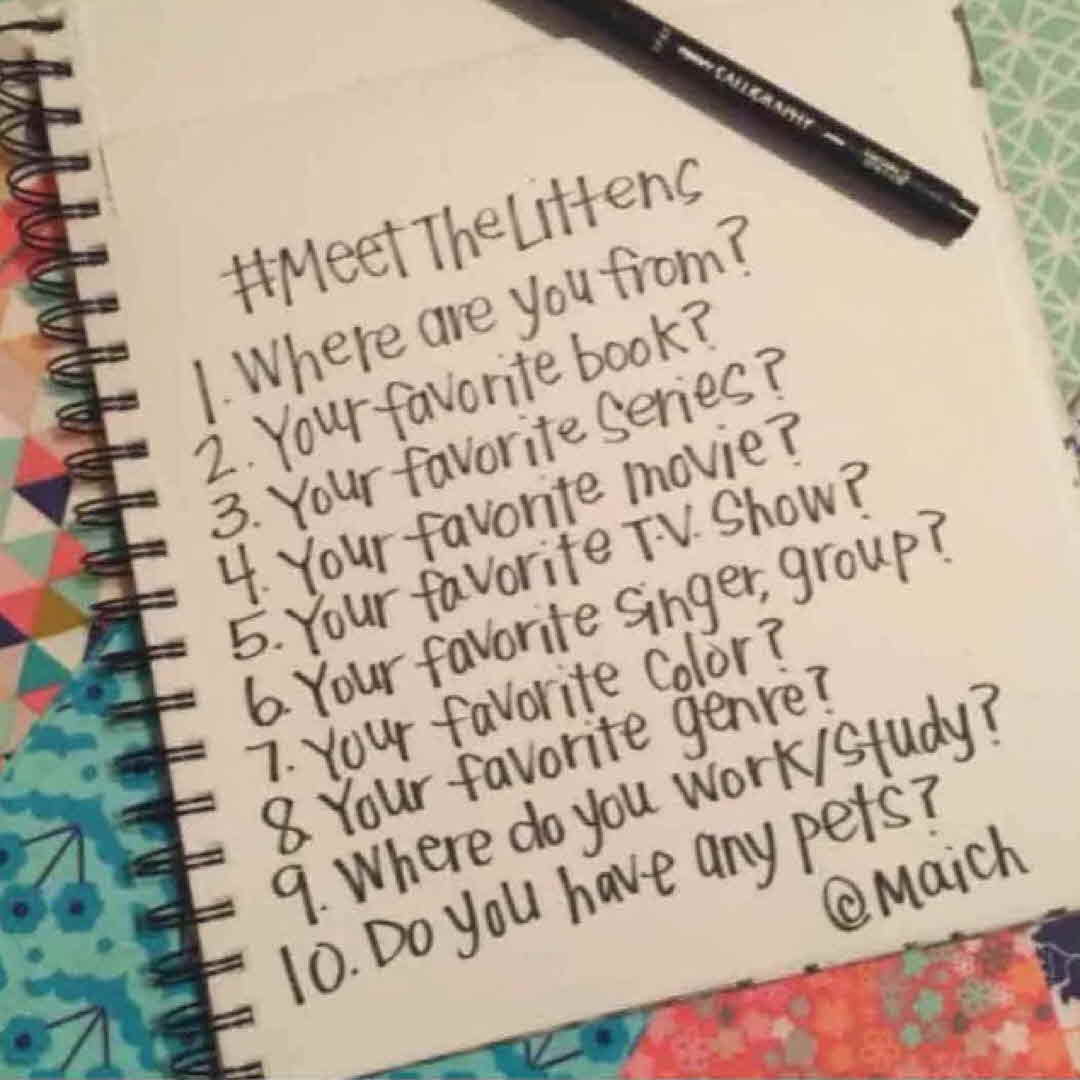 CALLIGRAPHY
#MeetTheLittens
1. Where are you from?
2. Your favorite book?
3. Your favorite series?
4. Your favorite movie?
5. Your favorite T.V. Show?
6. Your favorite singer, group?
7. Your favorite color?
8 Your favorite genre?
9. Where do you work/study?
10. Do you have any pets?
@Maich